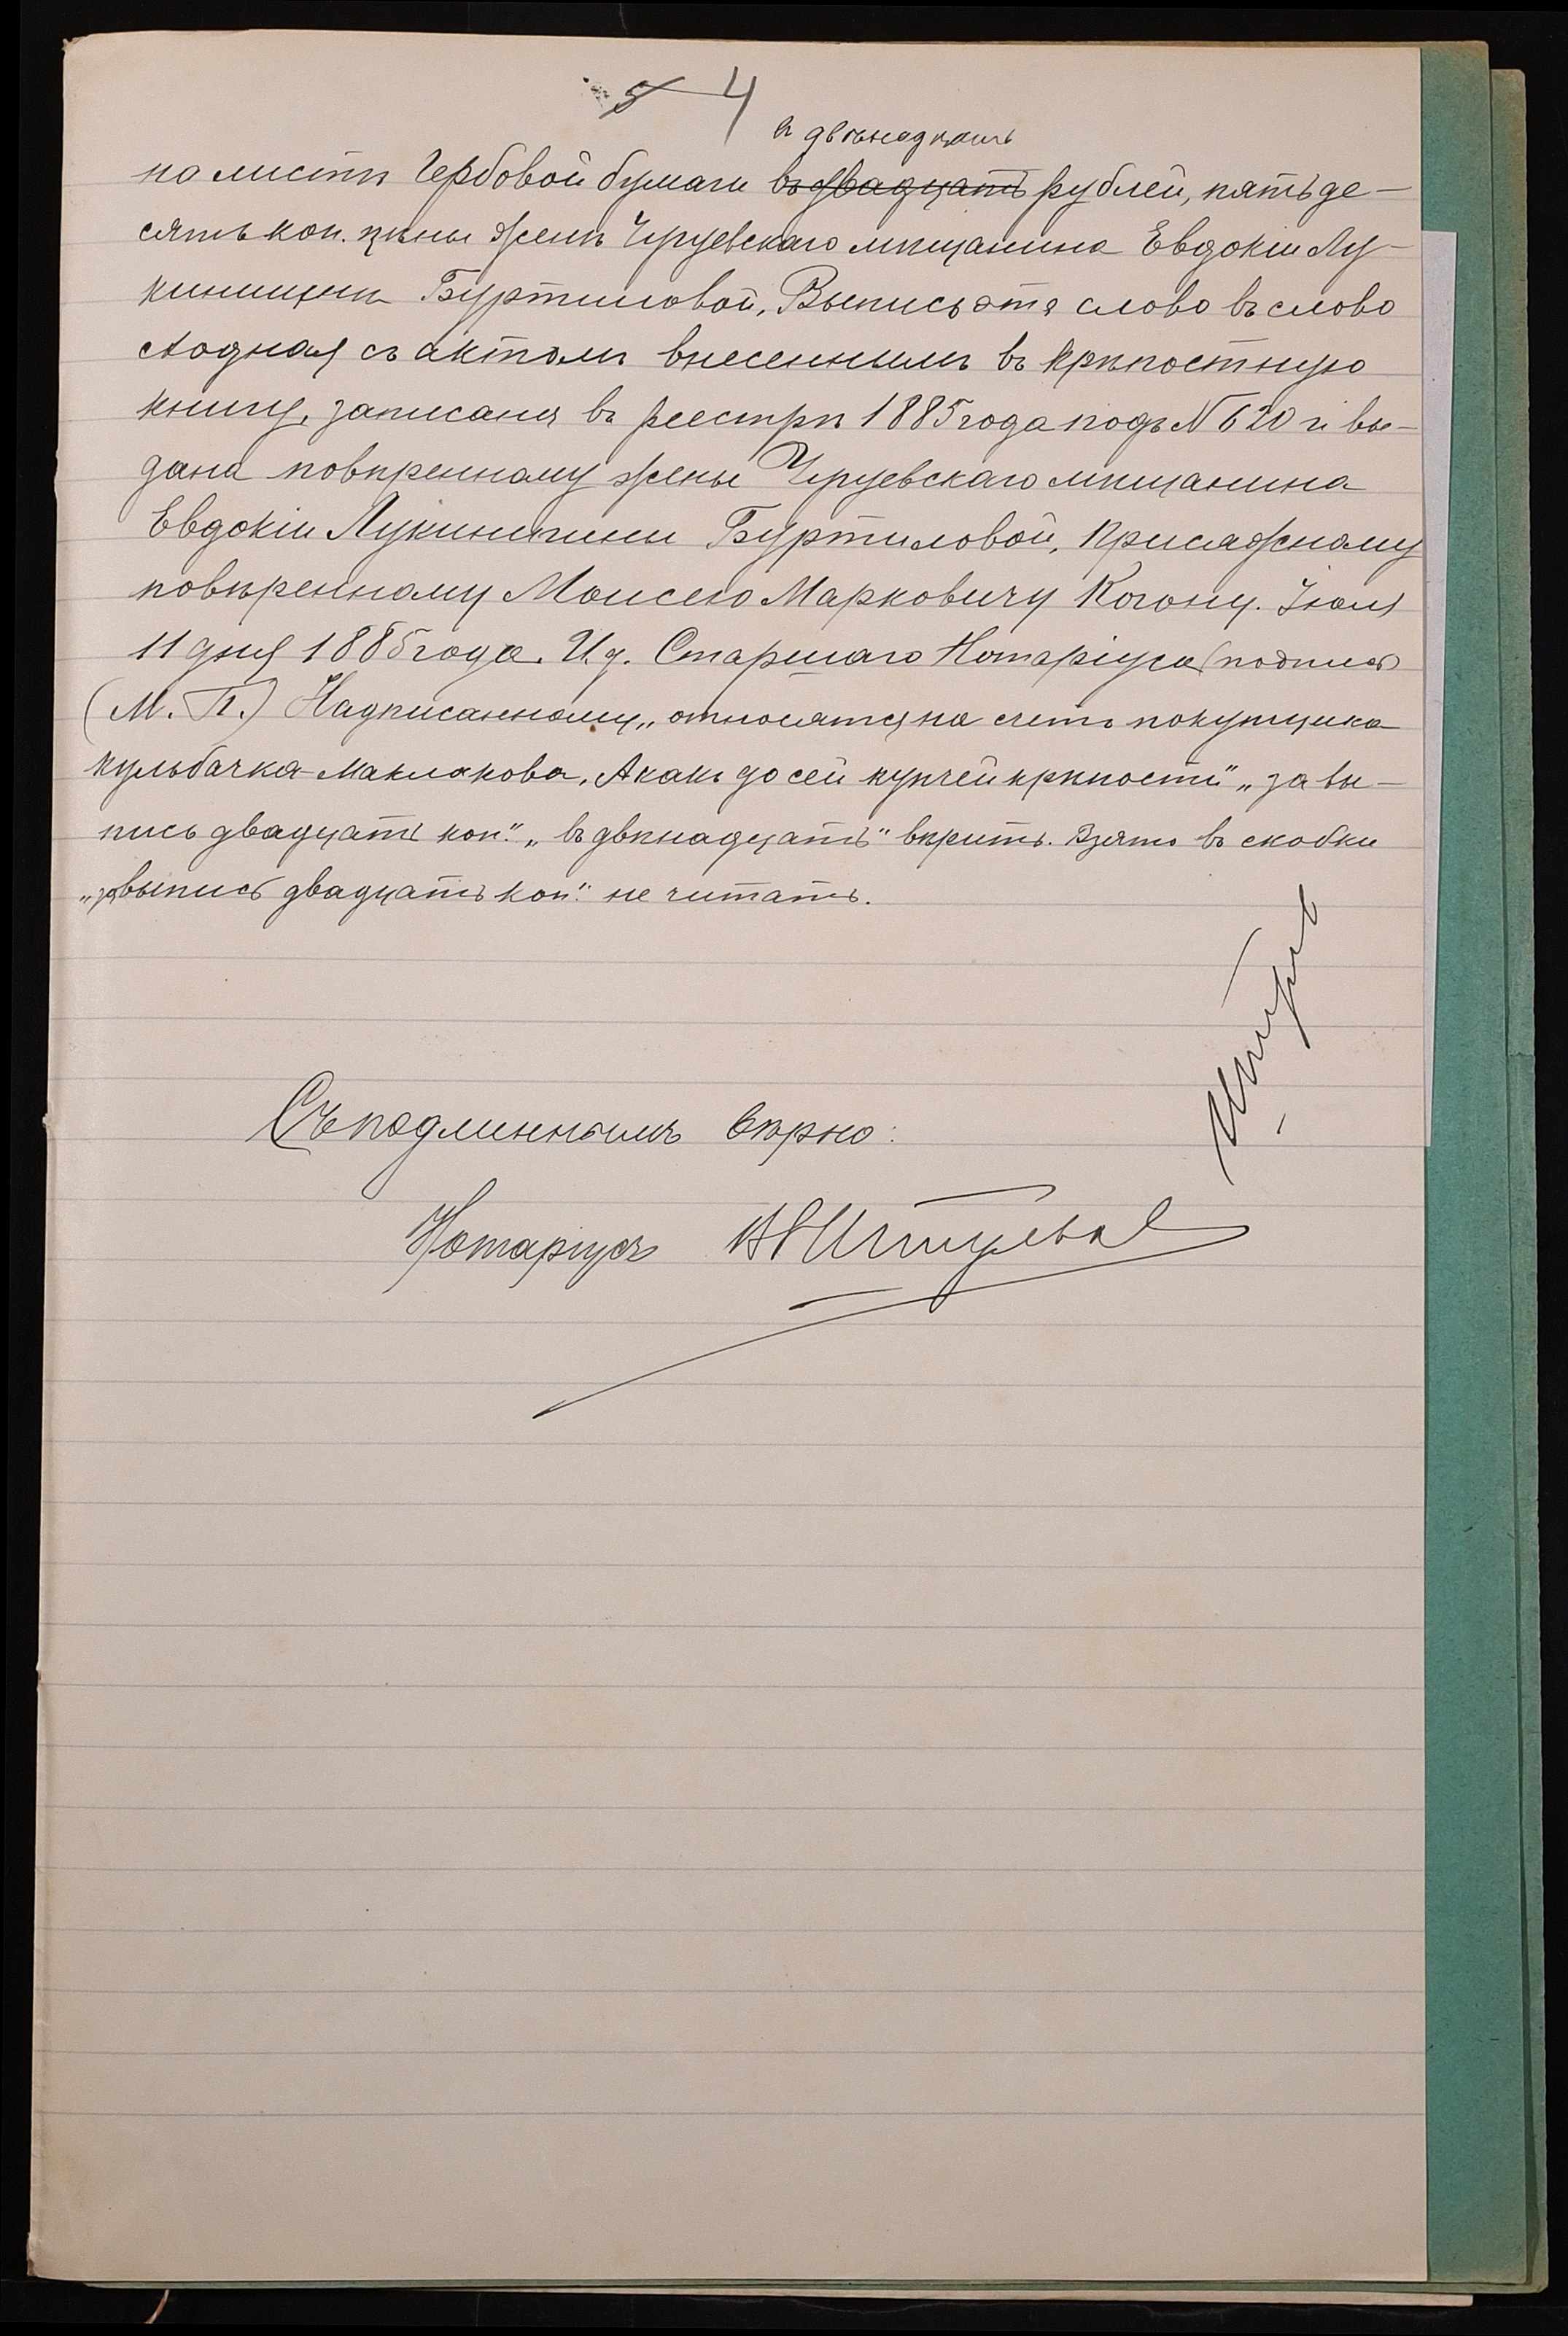 5 4
въ двѣнадцать
на листѣ Гербовой бумаги въ двадцать рублей, пятьде-
сятъ коп. цѣны женѣ Чугуевскаго мѣщанина Евдокіи Лу-
киничнѣ Буртиловой, Выпись эта слово въ слово
сходная съ актомъ внесеннымъ въ крѣпостную
книгу, записана въ реестрѣ 1885 года подъ № 620 и вы-
дана повѣренному жены Чугуевскаго мѣщанина
Евдокіи Лукиничны Буртиловой, Присяжному
повѣренному Моисею Марковичу Когону. Іюля
11 дня 1885 года. И. д. Старшаго Нотаріуса (подпись)
(М. П.) Надписанному „относятся на счетъ покупщика
Кульбачка-Маклакова, А какъ до сей купчей крѣпости" „за вы-
пись двадцать коп." „въ двѣнадцать" вѣрить. Взято въ скобки
„за выпись двадцать коп." не читать.
Съ подлиннымъ вѣрно:
Нотаріусъ